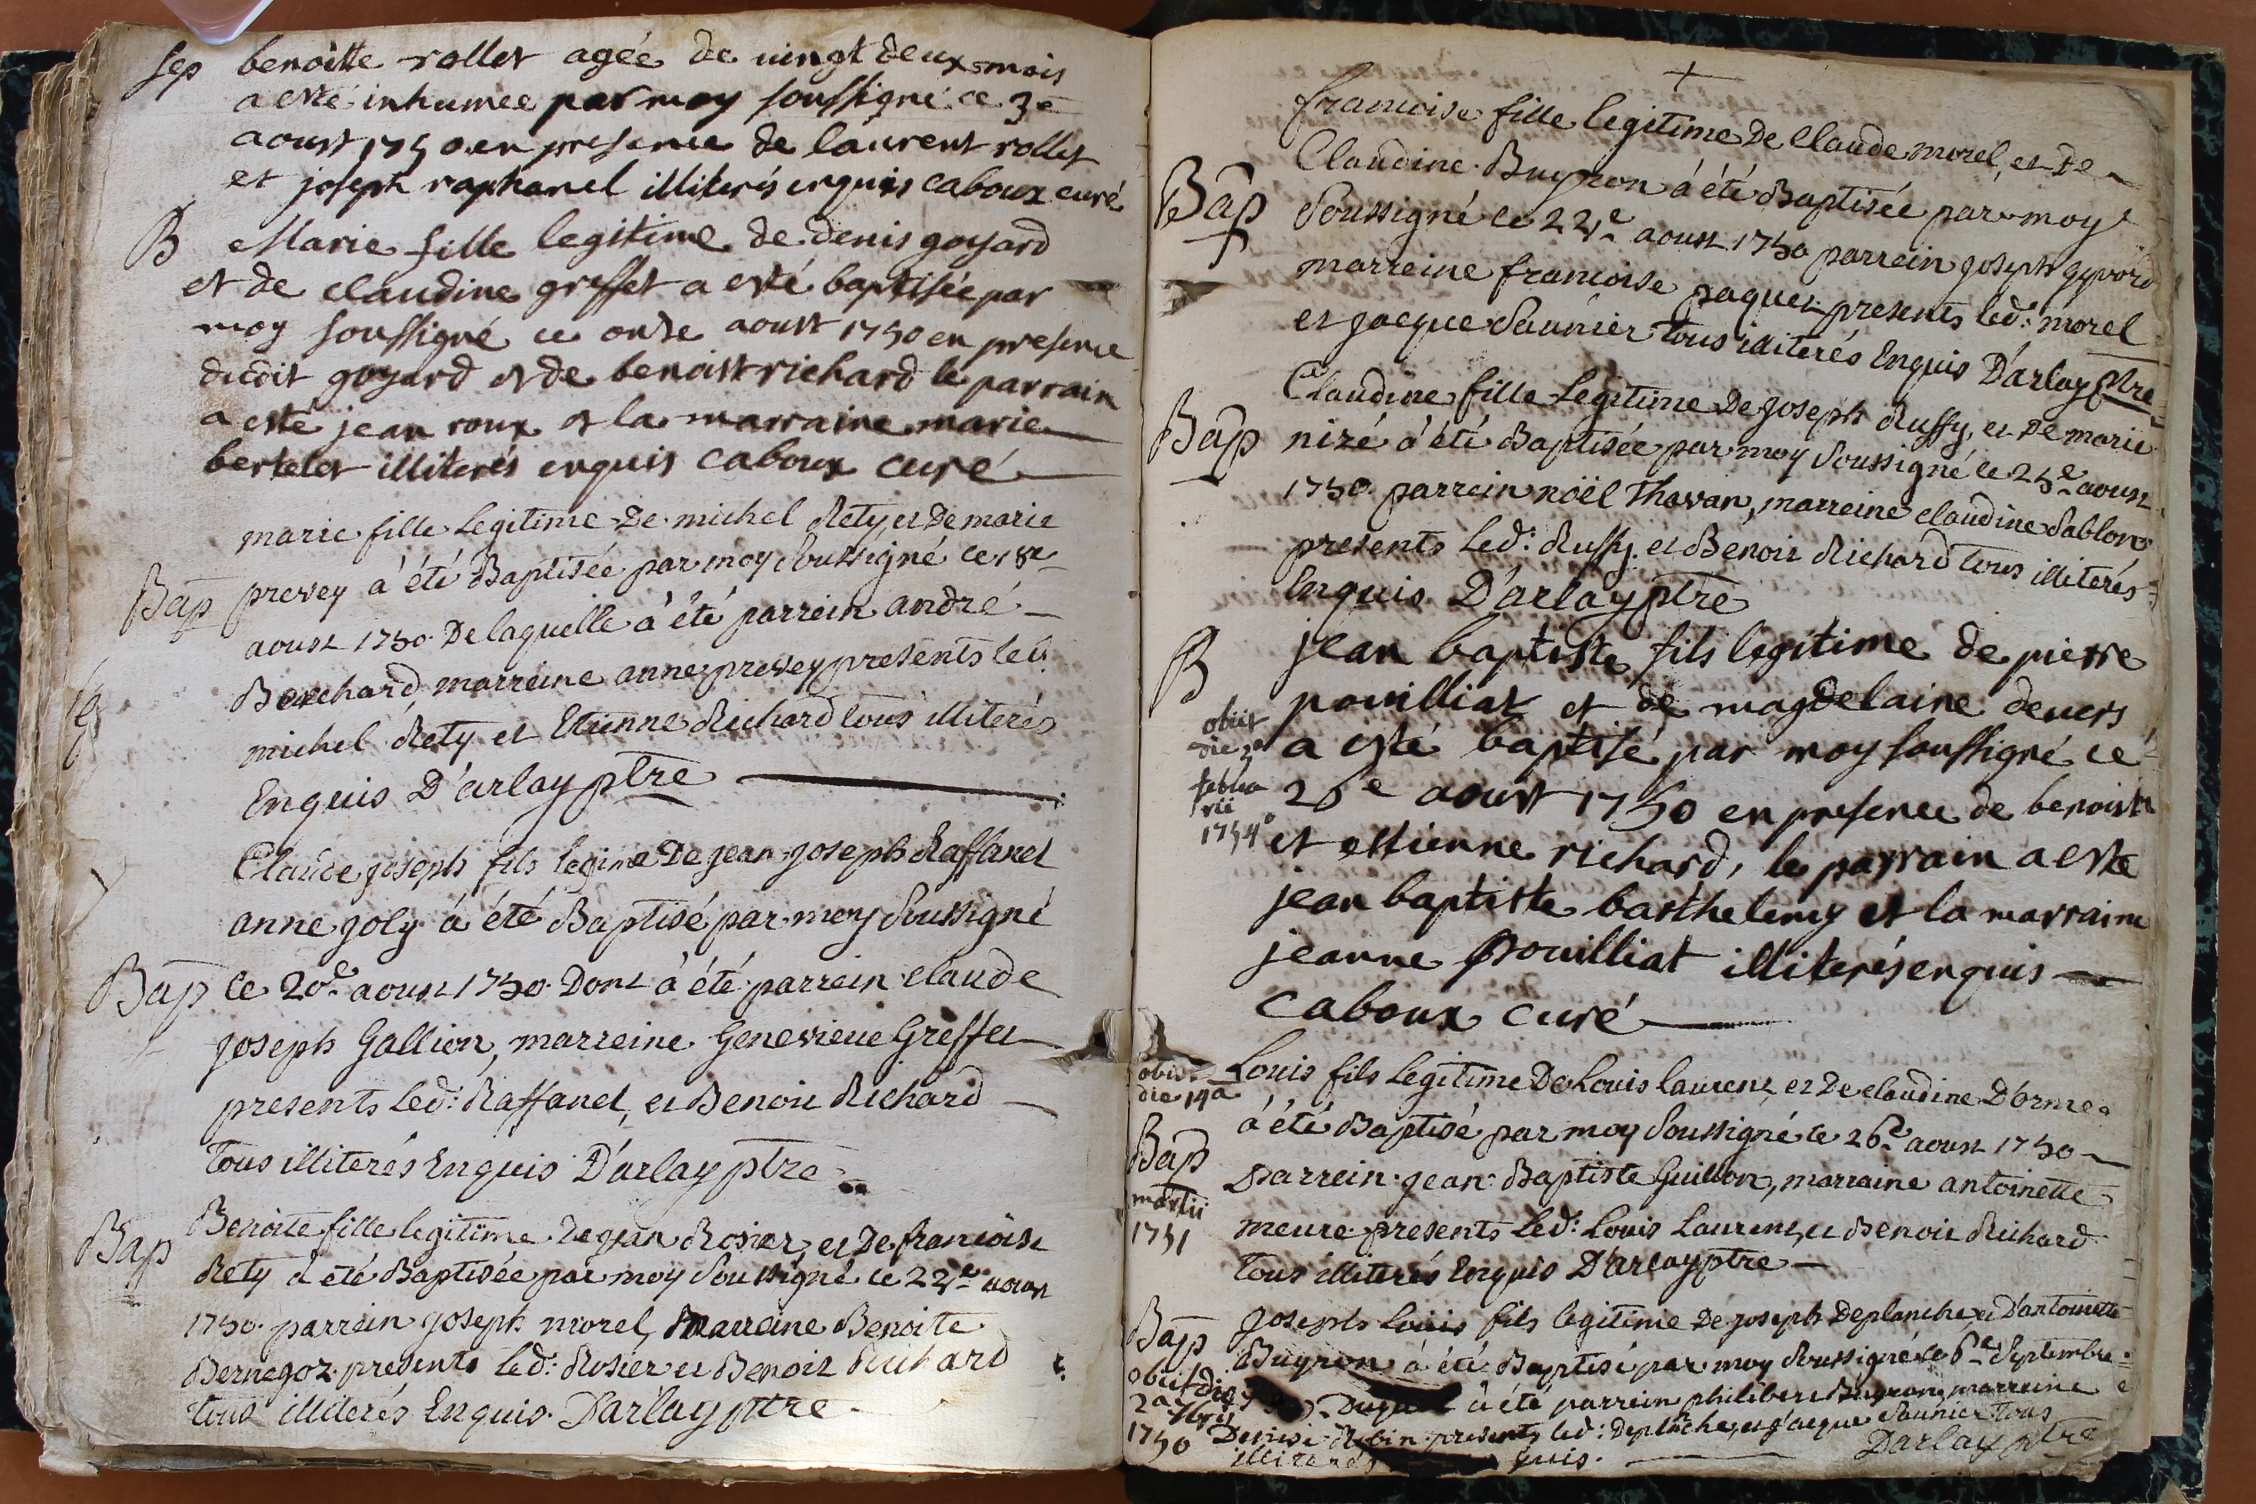 Sep benoitte rollet agée de vingt deux mois
a esté inhumee par moy soussigné ce 3e
aoust 1750 en presence de laurent rollet
et joseph raphanel illiterés enquis caboux curé
B Marie fille legitime de denis goyard
et de claudine greffet a esté baptisée par
moy soussigné ce onze aoust 1750 en presence
dudit goyard et de benoist richard le parrain
a esté jean roux et la marraine marie
bertelet illiterés enquis caboux curé
marie fille Legitime De michel Rety, et De marie
Bap prevey à été Baptisée par moy Soussigné ce 18e
aoust 1750. De laquelle à été parrein andré
Bouchard, marreine anne prevey presents led:
michel Rety et Etienne Richard tous illiterés
Enquis D'arlay ptre
Claude joseph fils legime De jean joseph Raffanel
anne joly à été Baptisé par moy Soussigné
Bap Ce 20e aoust 1750. Dont à été parrein claude
joseph Gallion, marreine Genevieve Greffet
presents led: Raffanel, et Benoit Richard
Tous illiterés Enquis D'arlay ptre
Bap Benoite fille legitime De jean Rosier, et De francoise
Rety à été Baptisée par moy Soussigné ce 22e aoust
1750. parrein joseph morel, marreine Benoite
Bernegoz. presents led: Rosier et Benoit Richard
tous illiterés Enquis. D'arlay ptre
+
francoise fille legitime De Claude morel, et De
Claudine Buyron à été Baptisée par moy
Bap Soussigné le 22e aoust 1750 parrein joseph
marreine francoise paquet presents led: morel
et jacque Saunier tous illiterés Enquis D'arlay ptre
Claudine fille Legitime De joseph Ruffy, et De marie
Bap nizé à été Baptisée par moy Soussigné le 25e aoust
1750. parrein noël Thavan, marreine claudine Sablon
presents led: Ruffy. et Benoit Richard tous illiterés
Enquis D'arlay ptre
B jean baptiste fils legitime de pierre
pouilliat et de magdelaine devers
obiit
die 3a
februa
rii
1754°
a esté baptisé par moy soussigné ce
26e aoust 1750 en presence de benoist
et estienne richard, le parrain a esté
jean baptiste barthelemy et la marraine
jeanne pouilliat illiterés enquis
caboux curé
obiit
die 14a
Louis fils Legitime De Louis laurent, et De claudine D'orme
à été Baptisé par moy Soussigné le 26e aoust 1750
Bap
martii
1751
Parrein jean Baptiste Guillon, marraine antoinette
meure presents led: Louis Laurent, et Benoit Richard
tous illiterés Enquis D'arlay ptre
Bap Joseph Louis fils legitime De joseph Deplanche, et D'antoinette
Buyron à été Baptisé par moy Soussigné le 6e Septembre
obiit die
2a 7bris
1750
à été parrein philibert Buyron, marreine
Denise Robin presents led: Deplanche, et jacque Saunier Tous
illiterés quis. Darlay ptre